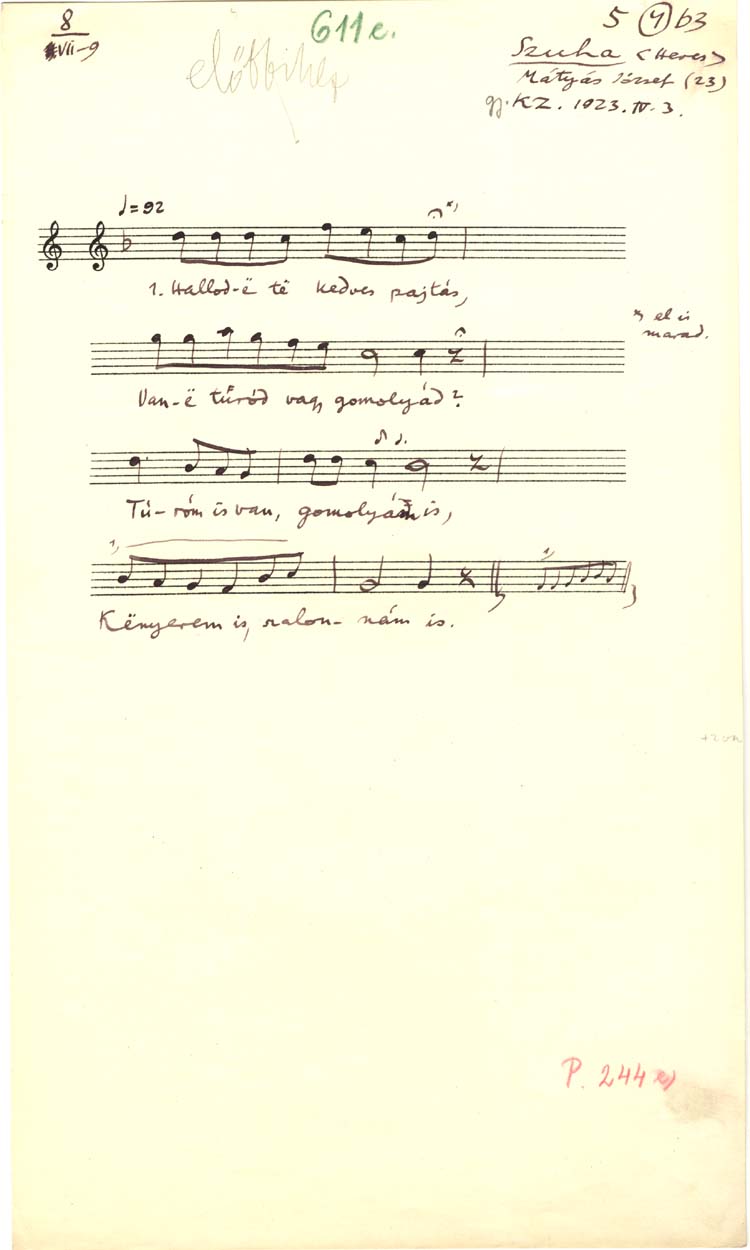 8
VII-9
611e.
előbbihez
5 4 b3
Szuha (Heves)
Mátyás József (23)
gy. KZ. 1923. IV. 3.
♩=92
x)
1. Hallod-ë të kedves pajtás,
x) el is
marad.
Van-ë túród vagy gomolyád?
Tú-róm is van, gomolyám is,
1)
1)
Kënyerem is, szalon-nám is.
P. 244 e)